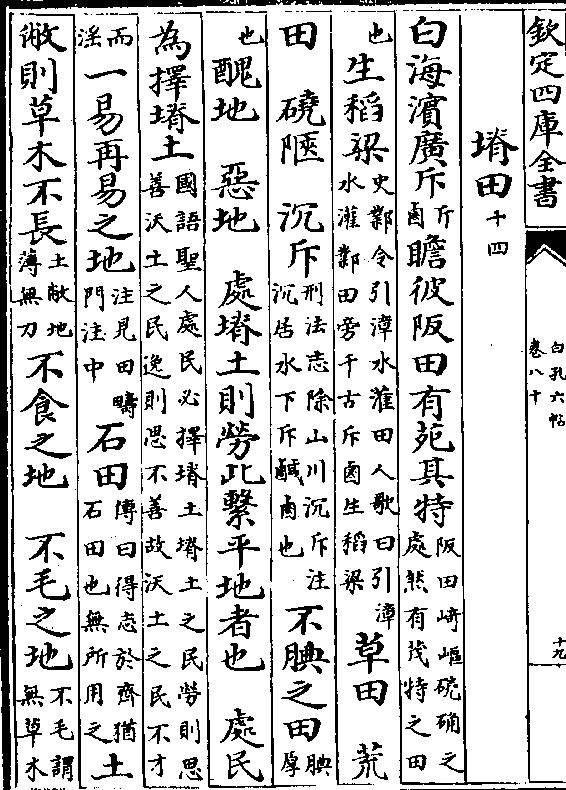 欽定四庫全書
白孔六帖
卷八十
十九
塉田十四
白海濱廣斥斥鹵瞻彼阪田有苑其特阪田崎嶇硗确之處然有茂特之田
也生稻粱史鄴令引漳水灌田人歌曰引漳水灌鄴田旁千古斥鹵生稻粱草田 荒
田 磽陿 沉斥刑法志除山川沉斥注沉居水下斥鹹鹵也不腆之田腆厚
也醜地 惡地 處塉土則勞此繫平地者也 處民
為擇塉土國語聖人處民必擇塉土塉土之民勞則思善沃土之民逸則思不善故沃土之民不才
而淫一易再易之地注見田疇門注中石田傳曰得志於齊猶石田也無所用之土
敝則草木不長土敝地薄無力不食之地 不毛之地不毛謂無草木